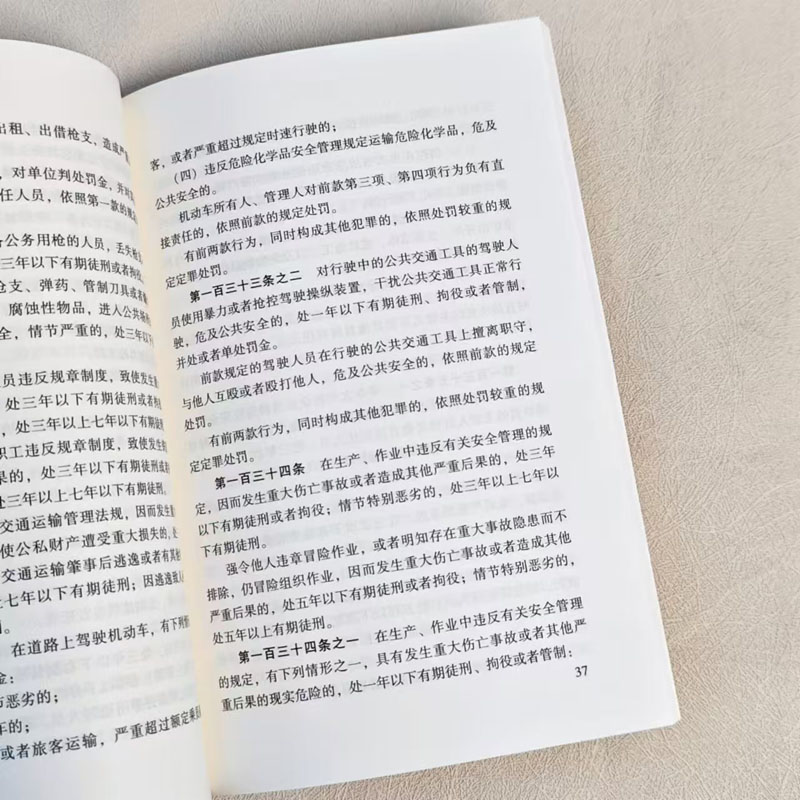 出租、出借枪支，造成严
，对单位判处罚金，并对
任人员，依照第一款的规
备公务用枪的人员，丢失枪
三年以下有期徒刑或者拘役
枪支、弹药、管制刀具或者
腐蚀性物品，进入公共场所
全，情节严重的，处三年以下
员违反规章制度，致使发生
处三年以下有期徒刑或者拘
，处三年以上七年以下有期徒
职工违反规章制度，致使发生
处三年以下有期徒刑或者拘
处三年以上七年以下有期徒刑
交通运输管理法规，因而发生
使公私财产遭受重大损失的，处
交通运输肇事后逃逸或者有其他
上七年以下有期徒刑；因逃逸致人
刑。
在道路上驾驶机动车，有下列情
金：
节恶劣的；
车的；
或者旅客运输，严重超过额定乘员
客，或者严重超过规定时速行驶的；
（四）违反危险化学品安全管理规定运输危险化学品，危及
公共安全的。
机动车所有人、管理人对前款第三项、第四项行为负有直
接责任的，依照前款的规定处罚。
有前两款行为，同时构成其他犯罪的，依照处罚较重的规
定定罪处罚。
第一百三十三条之二　对行驶中的公共交通工具的驾驶人
员使用暴力或者抢控驾驶操纵装置，干扰公共交通工具正常行
驶，危及公共安全的，处一年以下有期徒刑、拘役或者管制，
并处或者单处罚金。
前款规定的驾驶人员在行驶的公共交通工具上擅离职守，
与他人互殴或者殴打他人，危及公共安全的，依照前款的规定
处罚。
有前两款行为，同时构成其他犯罪的，依照处罚较重的规
定定罪处罚。
第一百三十四条　在生产、作业中违反有关安全管理的规
定，因而发生重大伤亡事故或者造成其他严重后果的，处三年
以下有期徒刑或者拘役；情节特别恶劣的，处三年以上七年以
下有期徒刑。
强令他人违章冒险作业，或者明知存在重大事故隐患而不
排除，仍冒险组织作业，因而发生重大伤亡事故或者造成其他
严重后果的，处五年以下有期徒刑或者拘役；情节特别恶劣的，
处五年以上有期徒刑。
第一百三十四条之一　在生产、作业中违反有关安全管理
的规定，有下列情形之一，具有发生重大伤亡事故或者其他严
重后果的现实危险的，处一年以下有期徒刑、拘役或者管制：
37